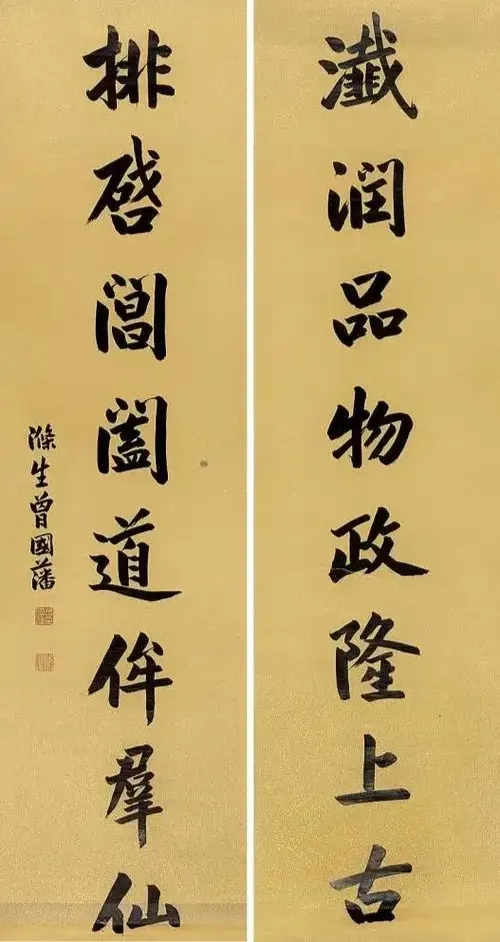 瀸润品物政隆上古
排啓閶闔道侔羣仙
滌生曾國藩